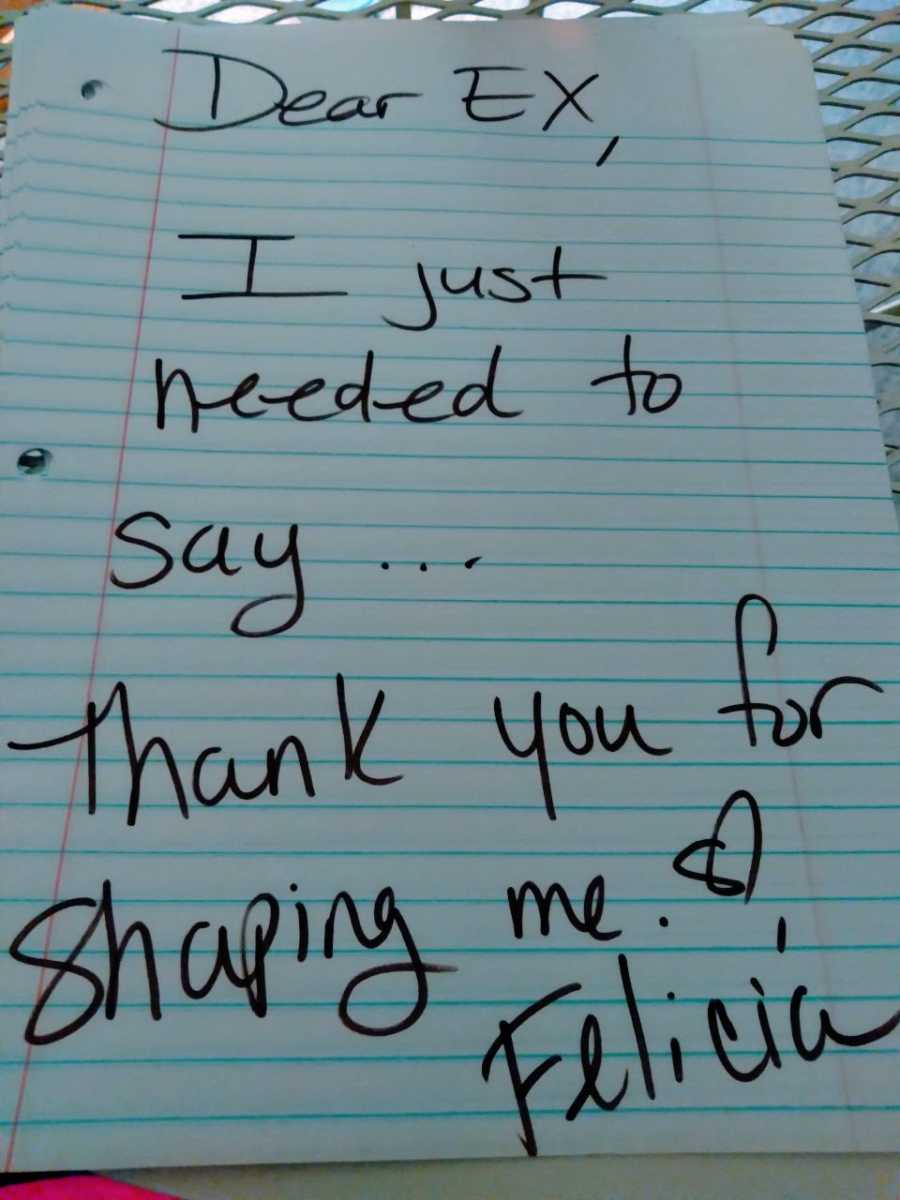 Dear EX,
I just
needed to
say ...
Thank you for
Shaping me.
Felicia